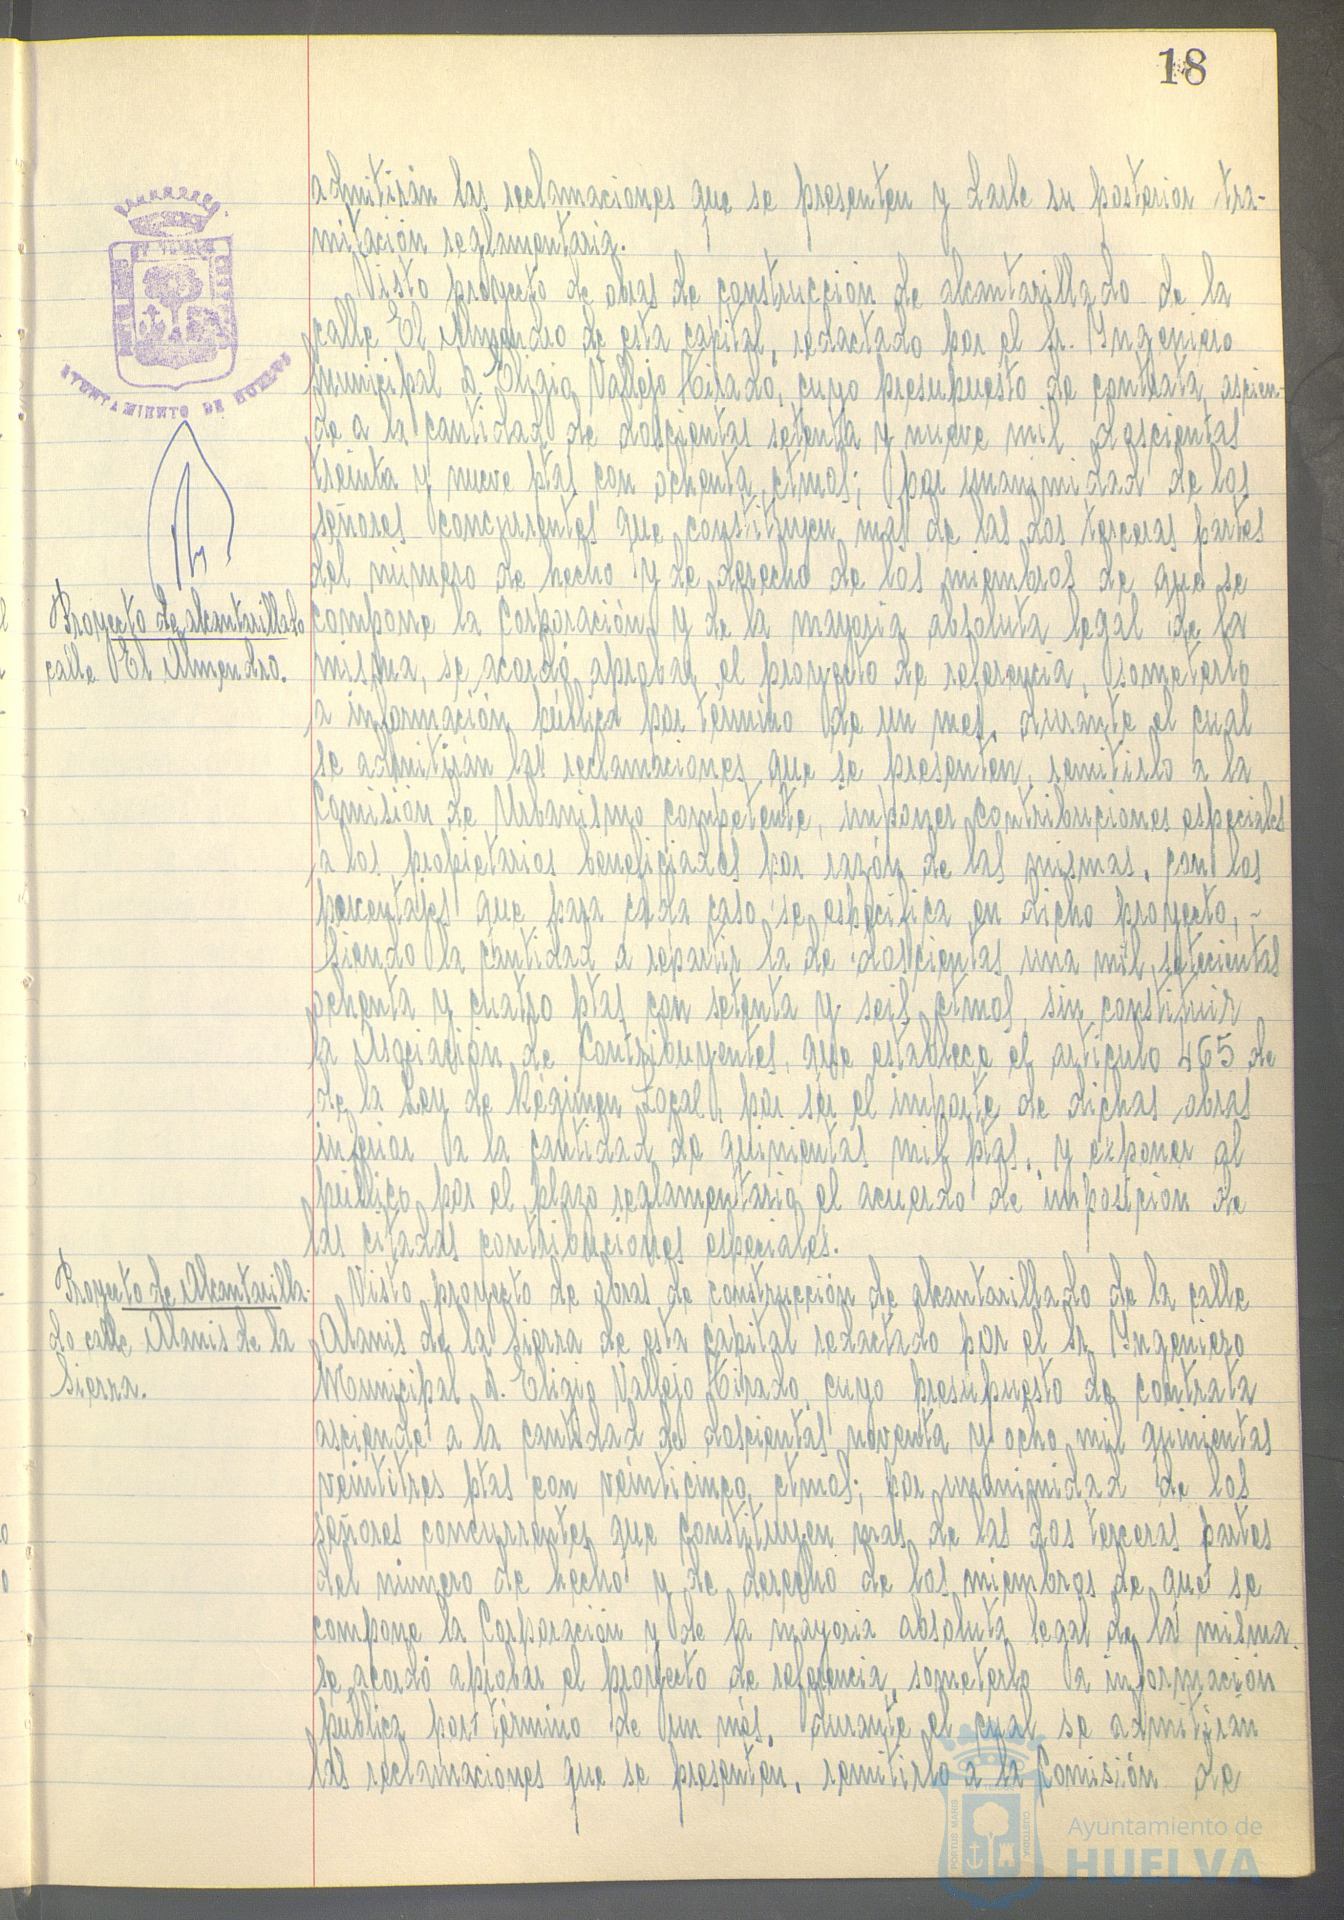 18
admitirán las reclamaciones que se presenten y darle su posterior tra-
mitación reglamentaria.
Visto proyecto de obras de construcción de alcantarillado de la
calle El Almendro de esta capital, redactado por el Sr. Ingeniero
Municipal D. Eligio Vallejo Tirado, cuyo presupuesto de contrata, ascien-
de a la cantidad de doscientas setenta y nueve mil doscientas
treinta y nueve ptas con ochenta ctmos; por unanimidad de los
señores concurrentes que constituyen más de las dos terceras partes
del número de hecho y de derecho de los miembros de que se
compone la Corporación y de la mayoria absoluta legal de la
misma, se acordó aprobar el proyecto de referencia, someterlo
a información pública por término de un mes, durante el cual
se admitirán las reclamaciones que se presenten, remitirlo a la
Comisión de Urbanismo competente, imponer contribuciones especiales
a los propietarios beneficiados por razón de las mismas, con los
porcentajes que para cada caso se especifica en dicho proyecto, -
siendo la cantidad a repartir la de doscientas una mil setecientas
ochenta y cuatro ptas con setenta y seis ctmos, sin constituir
la Asociación de Contribuyentes, que establece el artículo 465 de
de la Ley de Régimen Local, por ser el importe de dichas obras
inferior a la cantidad de quinientas mil ptas, y exponer al
público por el plazo reglamentario el acuerdo de imposición de
las citadas contribuciones especiales.
Visto proyecto de obras de construcción de alcantarillado de la calle
Alanis de la Sierra de esta capital redactado por el Sr. Ingeniero
Municipal D. Eligio Vallejo Tirado, cuyo presupuesto de contrata
asciende a la cantidad de doscientas noventa y ocho mil quinientas
veintitres ptas con veinticinco ctmos; por unanimidad de los
señores concurrentes que constituyen mas de las dos terceras partes
del número de hecho y de derecho de los miembros de que se
compone la Corporación y de la mayoria absoluta legal de la misma
se acordó aprobar el proyecto de referencia, someterlo a información
pública por término de un mes, durante el cual se admitirán
las reclamaciones que se presenten, remitirlo a la Comisión de
AYUNTAMIENTO DE HUELVA
Proyecto de alcantarillado
calle El Almendro.
Proyecto de Alcantarilla-
do calle Alanis de la
Sierra.
PORTUS MARIS
CUSTODIA
Ayuntamiento de
HUELVA